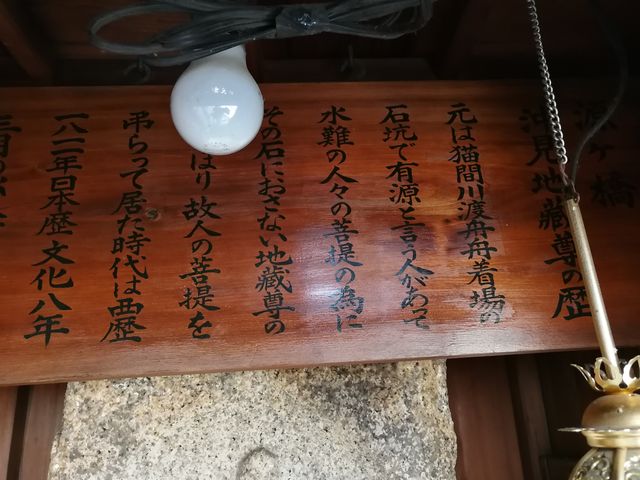 源ヶ橋
汐見地蔵尊の歴
元は猫間川渡舟舟着場の
石坑で有源と言う人があって
水難の人々の菩提の為に
その石におさない地蔵尊の
はり故人の菩提を
弔らって居た時代は西歴
一八一一年日本歴文化八年
三月